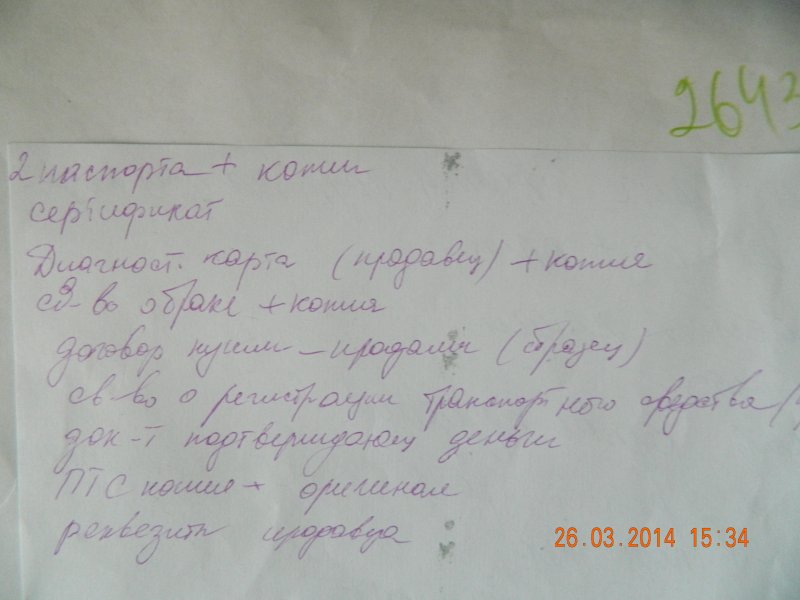 2643
2 паспорта + копии
сертификат
Диагност. карта (продавец) + копия
св-во о браке + копия
договор купли – продажи (образец)
св-во о регистрации транспортного средства (
док-т подтверждающ деньги
ПТС копия + оригинал
реквезиты продавца
26.03.2014 15:34